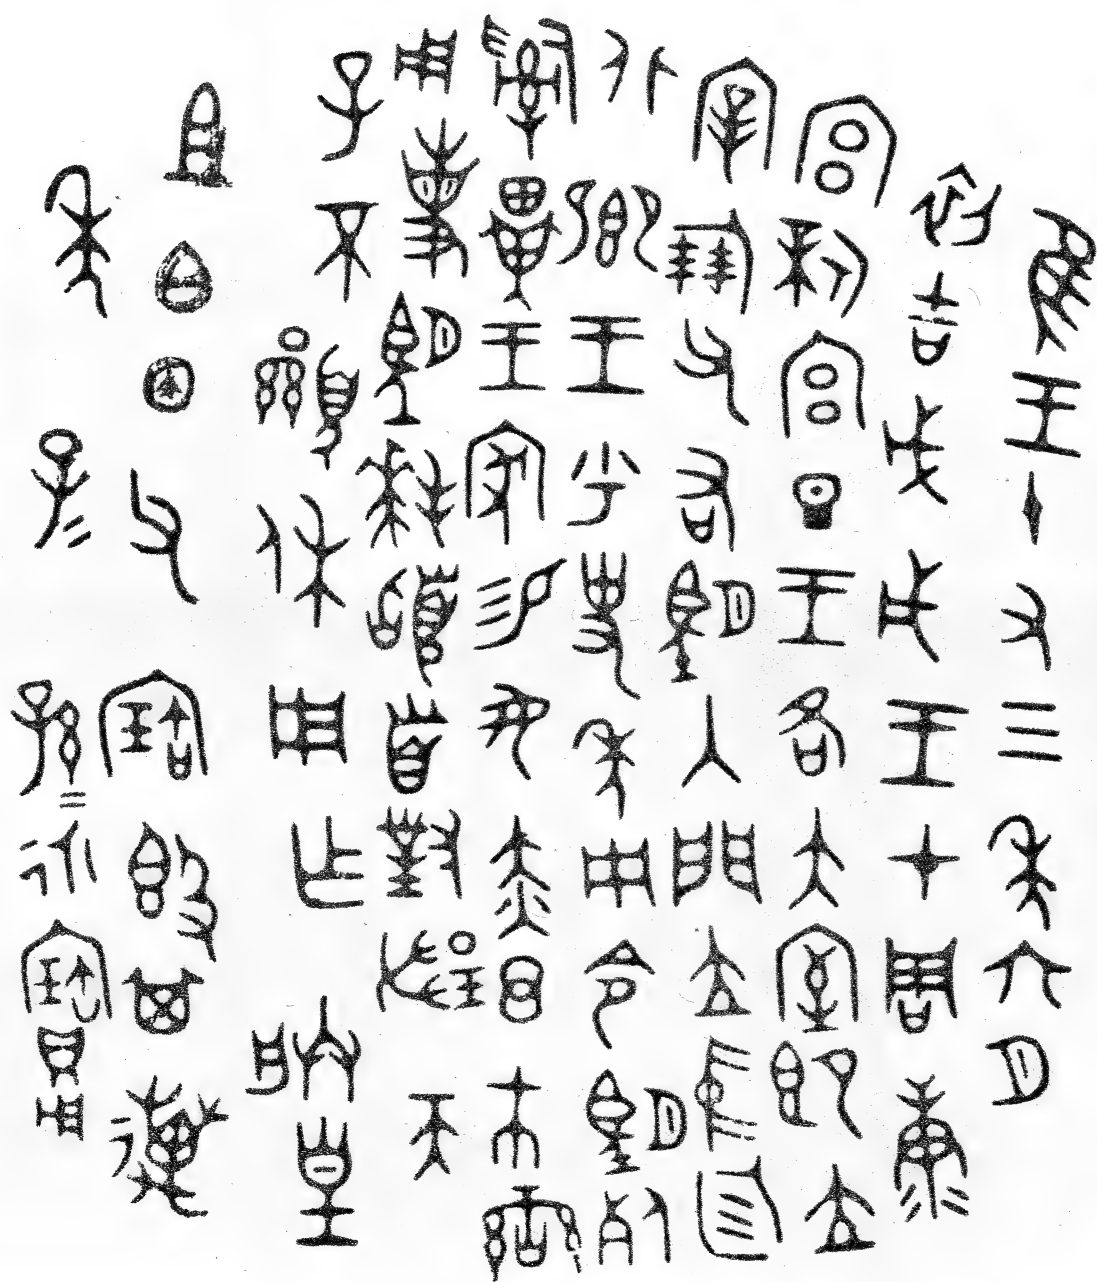 隹王十又三年六月
初吉戊戌王才周康
宮新宮旦王各大室即立
宰倗父右朢入門立中廷
北鄉王乎史年冊令朢死
𤔲畢王家易女赤𠨘巿䜌
用事朢拜𩒨首對揚天
子不顯休用乍朕皇
且白甲父寶𣪘其萬
年子=孫=永寶用